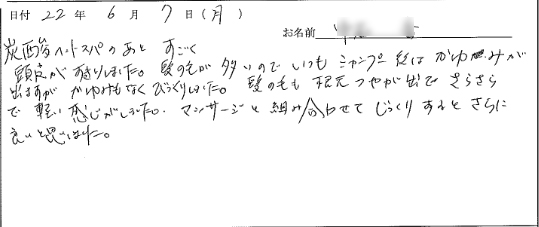 日付 22年 6月 7日(月)
お名前
炭酸ヘッドスパのあと すごく
頭皮がすっきりしました。髪の毛が多いのでいつもシャンプー後はかゆみが
出ますが かゆみもなくびっくりしました。髪の毛も根元つやが出てさらさら
で軽い感じがしました。マッサージと組み合わせてじっくりするとさらに
良いと思いました。